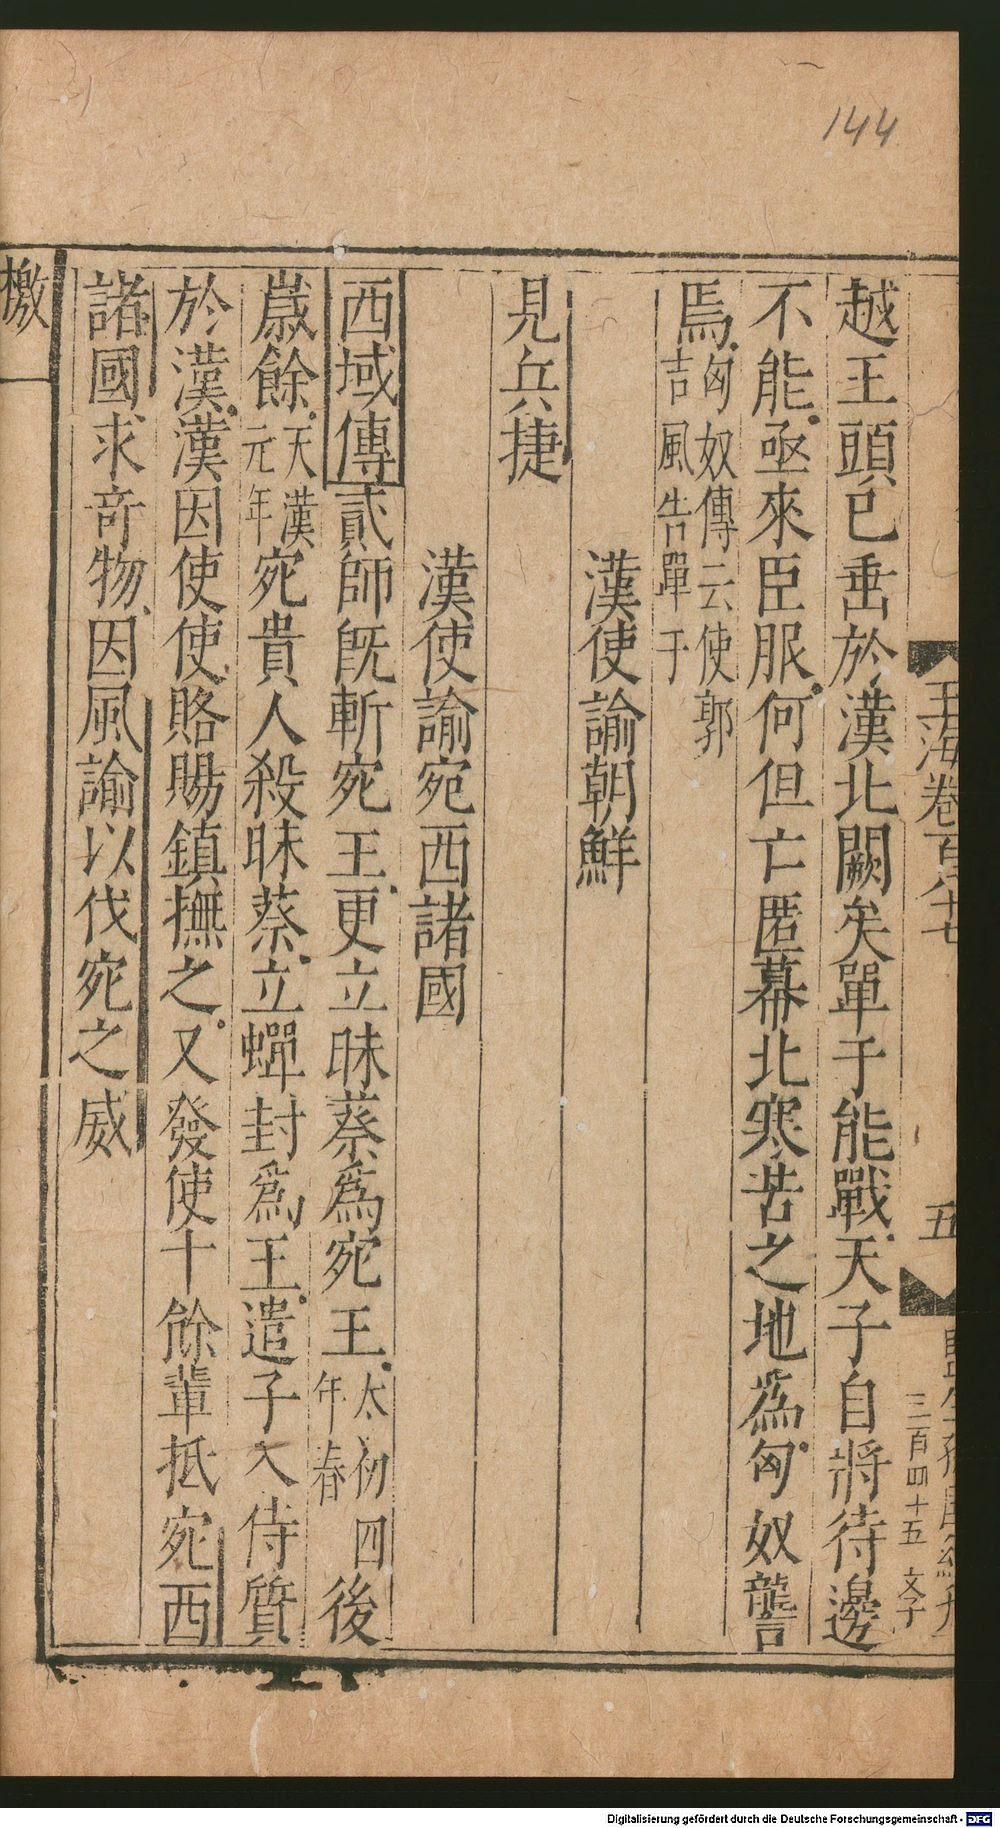 144
玉海卷百八十七
五
三百四十五 文子
越王頭已垂於漢北闕矣單于能戰天子自將待邊
不能亟來臣服何但亡匿幕北寒苦之地為匈奴讋
焉匈奴傳云使郭
吉風告單于
漢使諭朝鮮
見兵捷
漢使諭宛西諸國
西域傳貳師既斬宛王更立昧蔡為宛王太初四
年春後
歲餘天漢
元年宛貴人殺昧蔡立蟬封為王遣子入侍質
於漢漢因使使賂賜鎮撫之又發使十餘輩抵宛西
諸國求奇物因風諭以伐宛之威
檄
Digitalisierung gefördert durch die Deutsche Forschungsgemeinschaft - DFG